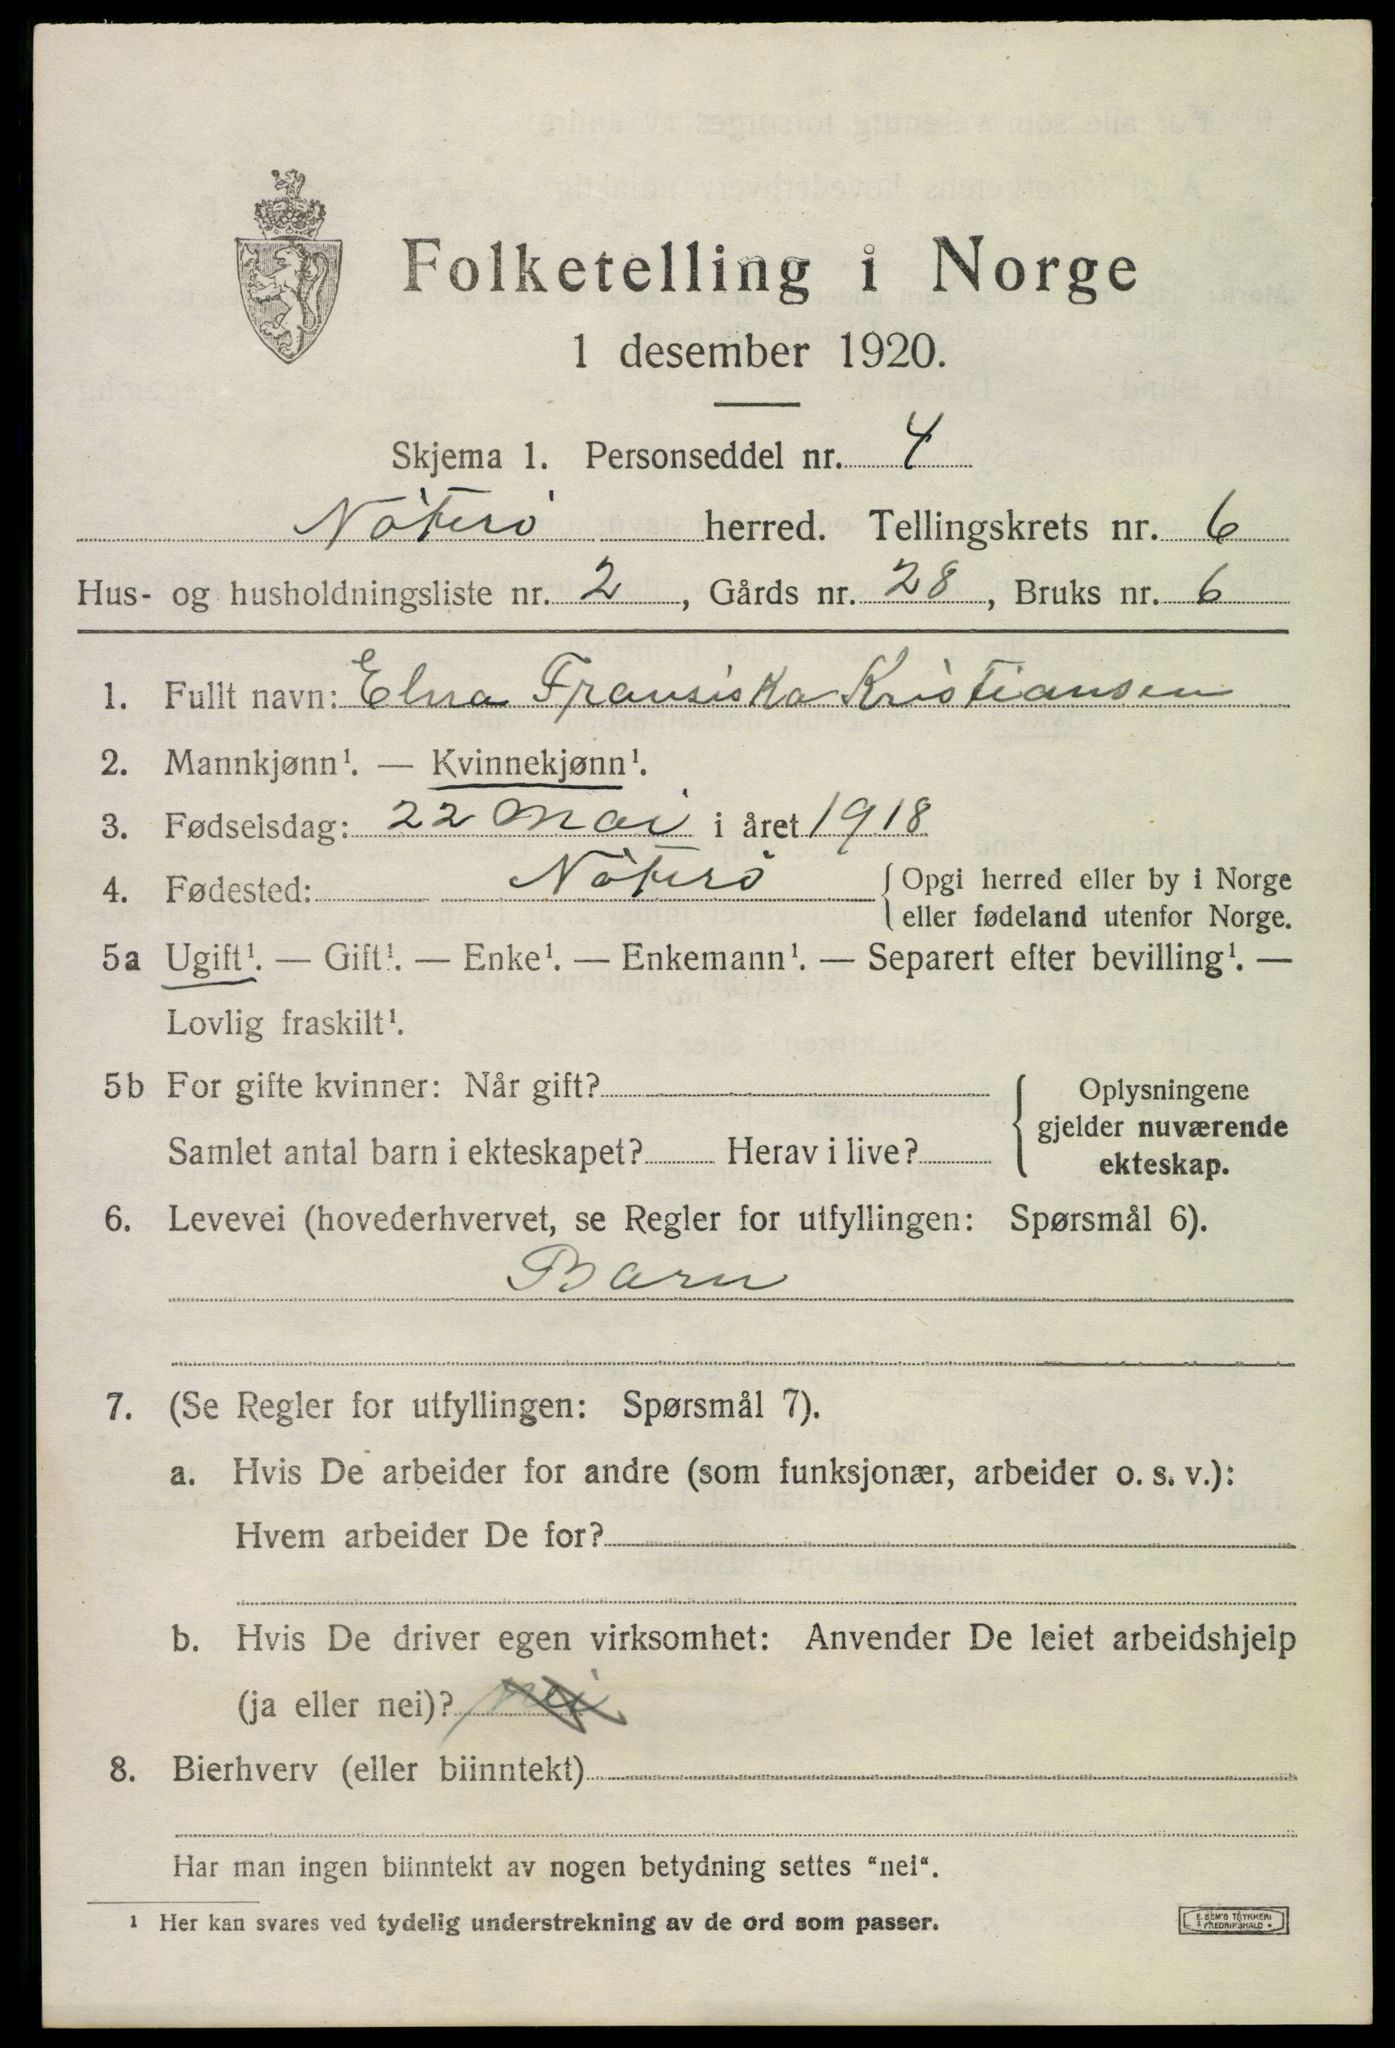 Folketelling i Norge
1 desember 1920.
Skjema 1. Personseddel nr. 4
Nøterø herred. Tellingskrets nr. 6
Hus- og husholdningsliste nr. 2, Gårds nr. 28, Bruks nr. 6
1. Fullt navn: Elna Fransiska Kristiansen
2. Mannkjønn¹. — Kvinnekjønn¹.
3. Fødselsdag: 22 Mai i året 1918
4. Fødested: Nøterø { Opgi herred eller by i Norge
eller fødeland utenfor Norge.
5a Ugift¹. — Gift¹. — Enke¹. — Enkemann¹. — Separert efter bevilling¹. —
Lovlig fraskilt¹.
5b For gifte kvinner: Når gift? { Oplysningene
gjelder nuværende
Samlet antal barn i ekteskapet? Herav i live? ekteskap.
6. Levevei (hovederhvervet, se Regler for utfyllingen: Spørsmål 6).
Barn
7. (Se Regler for utfyllingen: Spørsmål 7).
a. Hvis De arbeider for andre (som funksjonær, arbeider o. s. v.):
Hvem arbeider De for?
b. Hvis De driver egen virksomhet: Anvender De leiet arbeidshjelp
(ja eller nei)? nei
8. Bierhverv (eller biinntekt)
Har man ingen biinntekt av nogen betydning settes "nei".
¹ Her kan svares ved tydelig understrekning av de ord som passer.
E. SEM'S TRYKKERI
FREDRIKSHALD